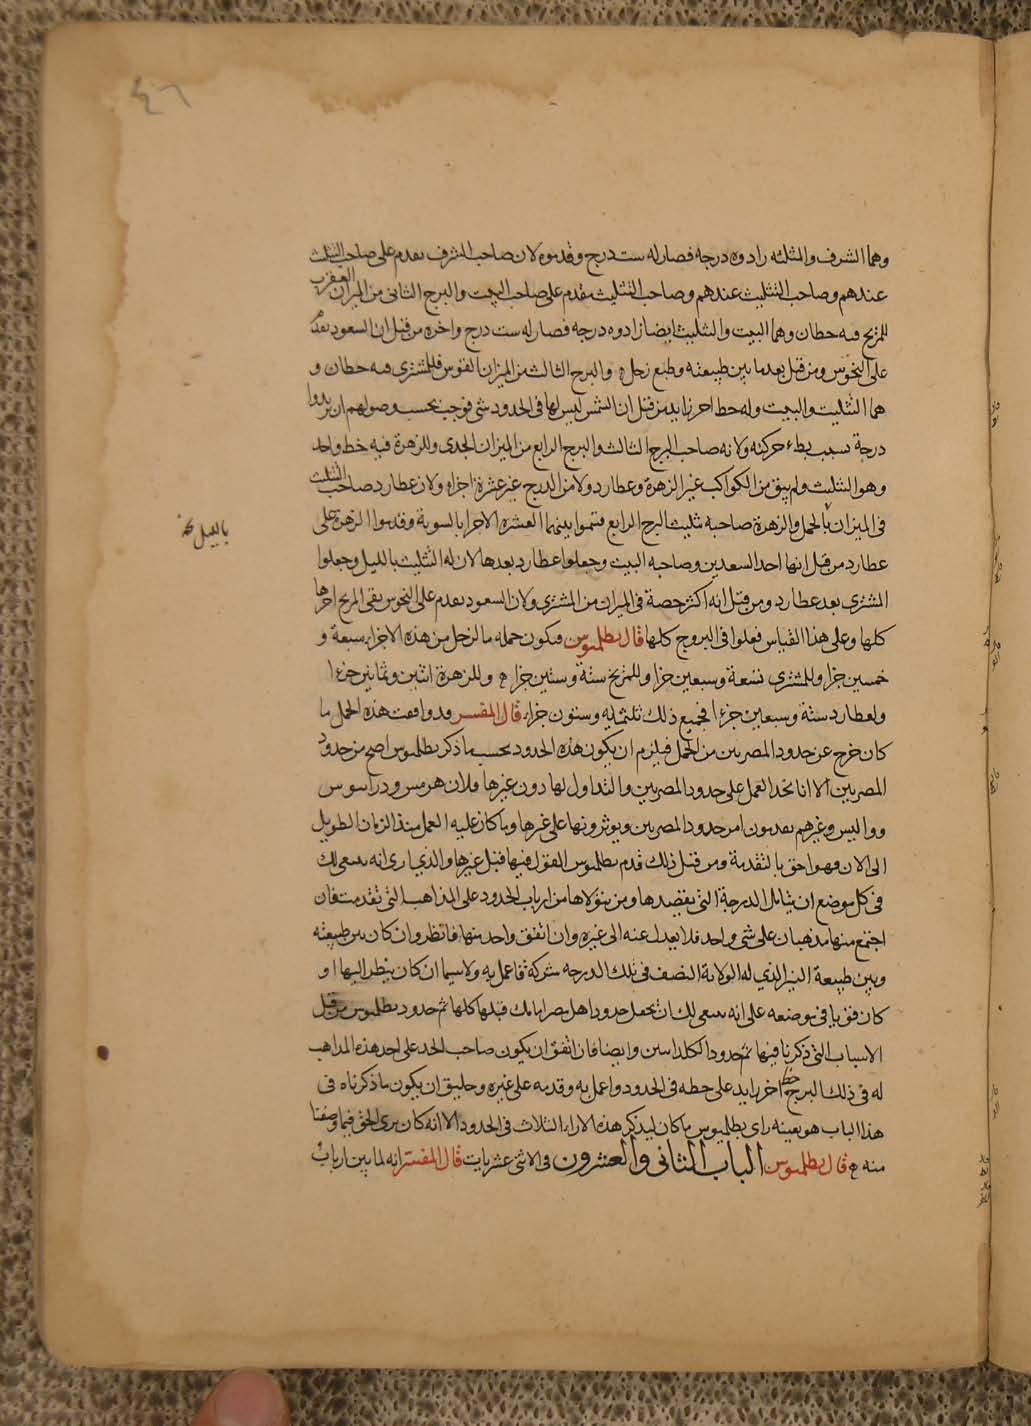 ٤٦
وهما الشرف والمثلثه زادوه درجه فصار له ست درج وقدموه لان صاحب الشرف يقدم على صاحب التثليث
عندهم وصاحب التثليث عندهم وصاحب التثليث مقدم على صاحب البيت والبرج الثانى من الميزان العقرب
للمريخ فيه حظان وهما البيت والتثليث ايضا زادوه درجه فصار له ست درج واخره من قبل ان السعود تقدم
على النحوس ومن قبل بعد ما بين طبيعته وطبع زحل والبرج الثالث من الميزان القوس فللمشترى فيه حظان و
هما التثليث والبيت وله حظ اخر زايد من قبل ان الشمس ليس لها فى الحدود شى فوجب بحسب وصولهم ان يزيدوا
درجة بسبب بطء حركته ولانه صاحب البرج الثالث والبرج الرابع من الميزان الجدى وللزهرة فيه خط واحد
وهو التثليث ولم يبق من الكواكب غير الزهرة وعطارد ولا من الدرج غير عشرة اجزاء ولان عطارد صاحب التثليث
فى الميزان بالحمل والزهرة صاحبه تثليث البرج الرابع قسموا بينهما العشره الاجزا بالسوية وقدموا الزهرة على
باليل نخ
عطارد من قبل انها احد السعدين وصاحبه البيت وجعلوا عطارد بعدها لان له التثليث بالليل وجعلوا
المشترى بعد عطارد ومن قبل انه اكثر حصة فى الميزان من المشترى ولان السعود تقدم على النحوس بقى المريخ اخرها
كلها وعلى هذا القياس فعلوا فى البروج كلها قال بطلميوس فيكون جمله ما لزحل من هذه الاجزاء سبعة و
خمسين جزا وللمشترى تسعة وسبعين جزا وللمريخ ستة وستين جزا وللزهرة اثنين وثمانين جزءا
ولعطارد ستة وسبعين جزءا فجميع ذلك ثلثمايه وستون جزاء قال المفسر قد وافقت هذه الجمل ما
كان خرج عن حدود المصريين من الجمل فيلزم ان يكون هذه الحدود بحسب ما ذكر بطلميوس اصح من حدود
المصريين الا انا نجد العمل على حدود المصريين والتداول لها دون غيرها ولان هرمس ودراسوس
وواليس وغيرهم يقدمون امر حدود المصريين ويوثرونها على غيرها وما كان عليه العمل منذ الزمان الطويل
الى الان فهو احق بالتقدمة ومن قبل ذلك قدم بطلميوس القول فيها قبل غيرها والذي ارى انه ينبغى لك
فى كل موضع ان تتامل الدرجة التى تقصدها ومن يتولاها من ارباب الحدود على المذاهب التى تقدمت فان
اجتمع منها مذهبان على شى واحد فلا تعدل عنه الى غيره وان اتفق واحد منها فانظر وان كان بين طبيعته
وبين طبيعة النير الذي له الولاية النصف فى تلك الدرجه شركة فاعمل به ولاسيما ان كان ينظر اليها او
كان قويا فى موضعه على انه ينبغى لك ان تجعل حدود اهل مصر قبلها كلها ثم حدود بطلميوس من قبل
الاسباب التى ذكرنا فيها ثم حدود الكلدانيين وايضا فان اتفق ان يكون صاحب الحد على احد هذه المذاهب
له فى ذلك البرج حظ اخر زايد على حظه فى الحدود واعمل به وقدمه على غيره وخليق ان يكون ما ذكرناه فى
هذا الباب هو بعينه راى بطلميوس ما كان ليذكر هذه الاراء الثلاث فى الحدود الا انه كان يرى الحق فيما وصفنا
منه قال بطلميوس الباب الثانى والعشرون فى الاثنى عشريات قال المفسر انه لما بين ارباب